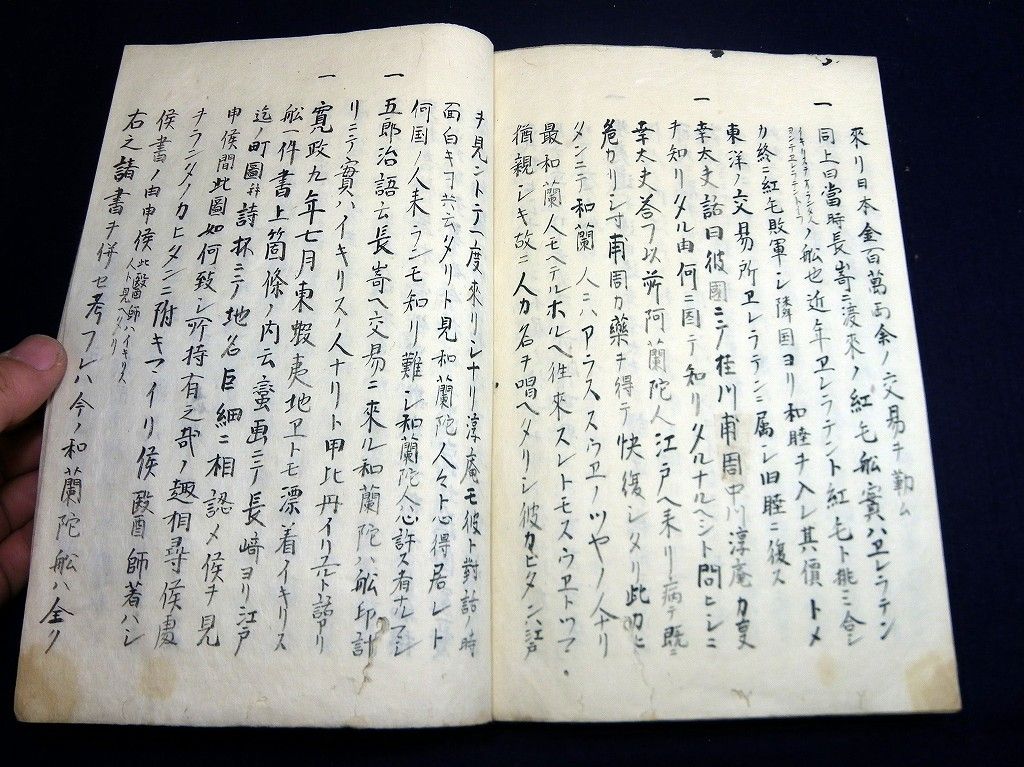 來リ日本金百萬両余ノ交易ヲ勤ム
一 同上曰當時長嵜ニ渡來ノ紅毛舩實ハヱレラテン
ノ舩也近年ヱレラテント紅毛ト挑ミ合シ
カ終ニ紅毛敗軍シ隣国ヨリ和睦ヲ入レ其價トメ
東洋ノ交易所ヱレラテンニ属シ旧睦ニ復ス
一 幸太夫話曰彼國ニテ桂川甫周中川淳庵カ叓
ヲ知リタル由何ニ因テ知リタルナルヘシト問ヒシニ
幸太夫答フ以前阿蘭陀人江戸ヘ来リ病テ既ニ
危カリシ寸甫周カ藥ヲ得テ快復シタリ此カヒ
タンニテ和蘭人ニハアラススウヱノツヤノ人ナリ
最和蘭人モヘテルホルヘ徃來スレトモスウヱトツマ
猶親シキ故ニ人カ名ヲ唱ヘタリシ彼カピタン江戸
ヲ見ントテ一度來リシナリ淳庵モ彼ト對話ノ時
面白キヿ共云タリト見和蘭陀人々ト心得居レト
何国ノ人来ランモ知リ難シ和蘭陀人心許ス有ルマシ
一 五郎治語云長嵜ヘ交易ニ來ル和蘭陀ハ舩印計
リニテ實ハイキリスノ人ナリト甲比丹イリユト話アリ
一 寛政九年七月東蝦夷地ヱトモ漂着イキリス
舩一件書上箇條ノ内云蛮画ニテ長崎ヨリ江戸
迄ノ町圖并詩杯ニテ地名巨細ニ相認メ候ヲ見
申候間此圖如何致シ所持有之哉ノ趣相尋候處
ヲランタノカヒタンニ附キマイリ候醫師著ハシ
候書ノ由申候 此醫師ハイキリス人ト見ヘタリ
右之諸書ヲ併セ考フレハ今ノ和蘭陀舩ハ全ク